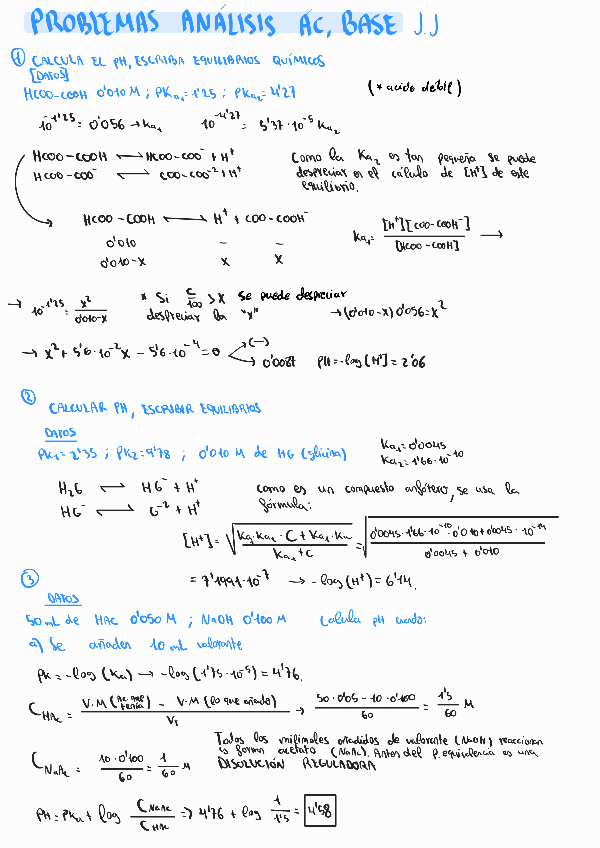 PROBLEMAS ANÁLISIS ÁC, BASE J.J
① CALCULA EL PH, ESCRIBA EQUILIBRIOS QUÍMICOS
[DATOS]
HCOO-COOH 0'010 M ; PKa₁=1'25 ; PKa₂=4'27 (* acido debil)
10^-1'25 = 0'056 → Ka₁ 10^-4'27 = 5'37·10⁻⁵ Ka₂
HCOO-COOH ⟷ HCOO-COO⁻ + H⁺ Como la Ka₂ es tan pequeña se puede
HCOO-COO⁻ ⟷ COO-COO⁻² + H⁺ despreciar en el cálculo de [H⁺] de este
equilibrio.
HCOO-COOH ⟷ H⁺ + COO-COOH⁻ Ka₁ = [H⁺][COO-COOH⁻] / [HCOO-COOH] →
0'010 - -
0'010-X X X
→ 10^-1'25 = x² / 0'010-x * Si C/100 > X se puede despreciar → (0'010-x) 0'056 = x²
despreciar la "x"
→ x² + 5'6·10⁻²x - 5'6·10⁻⁴ = 0 (-)
0'0087 PH = -log [H⁺] = 2'06
② CALCULAR PH, ESCRIBIR EQUILIBRIOS
DATOS
PK₁=2'35 ; PK₂=9'78 ; 0'010 M de HG (glicina) Ka₁=0'0045
Ka₂=1'66·10⁻¹⁰
H₂G ⟷ HG⁻ + H⁺ como es un compuesto anfótero, se usa la
HG⁻ ⟷ G⁻² + H⁺ fórmula:
[H⁺] = √(Ka₁·Ka₂·C + Ka₁·Kw / Ka₁+C) = √(0'0045·1'66·10⁻¹⁰·0'010+0'0045·10⁻¹⁴ / 0'0045 + 0'010)
= 7'1991·10⁻⁷ → -log (H⁺) = 6'14.
③
DATOS
50 mL de HAc 0'050 M ; NaOH 0'100 M Calcula pH cuando:
a) Se añaden 10 mL valorante
PK = -log (Ka) → -log (1'75·10⁻⁵) = 4'76.
C_HAc = V·M (Ac que tenía) - V·M (lo que añado) / V_T → 50·0'05 - 10·0'100 / 60 = 1'5 / 60 M
C_NaAc = 10·0'100 / 60 = 1 / 60 M Todos los milimoles añadidos de valorante (NaOH) reaccionan
y forma acetato (NaAc). Antes del p. equivalencia es una
DISOLUCIÓN REGULADORA
PH = PKa + log C_NaAc / C_HAc ⇒ 4'76 + log 1 / 1'5 = 4'58